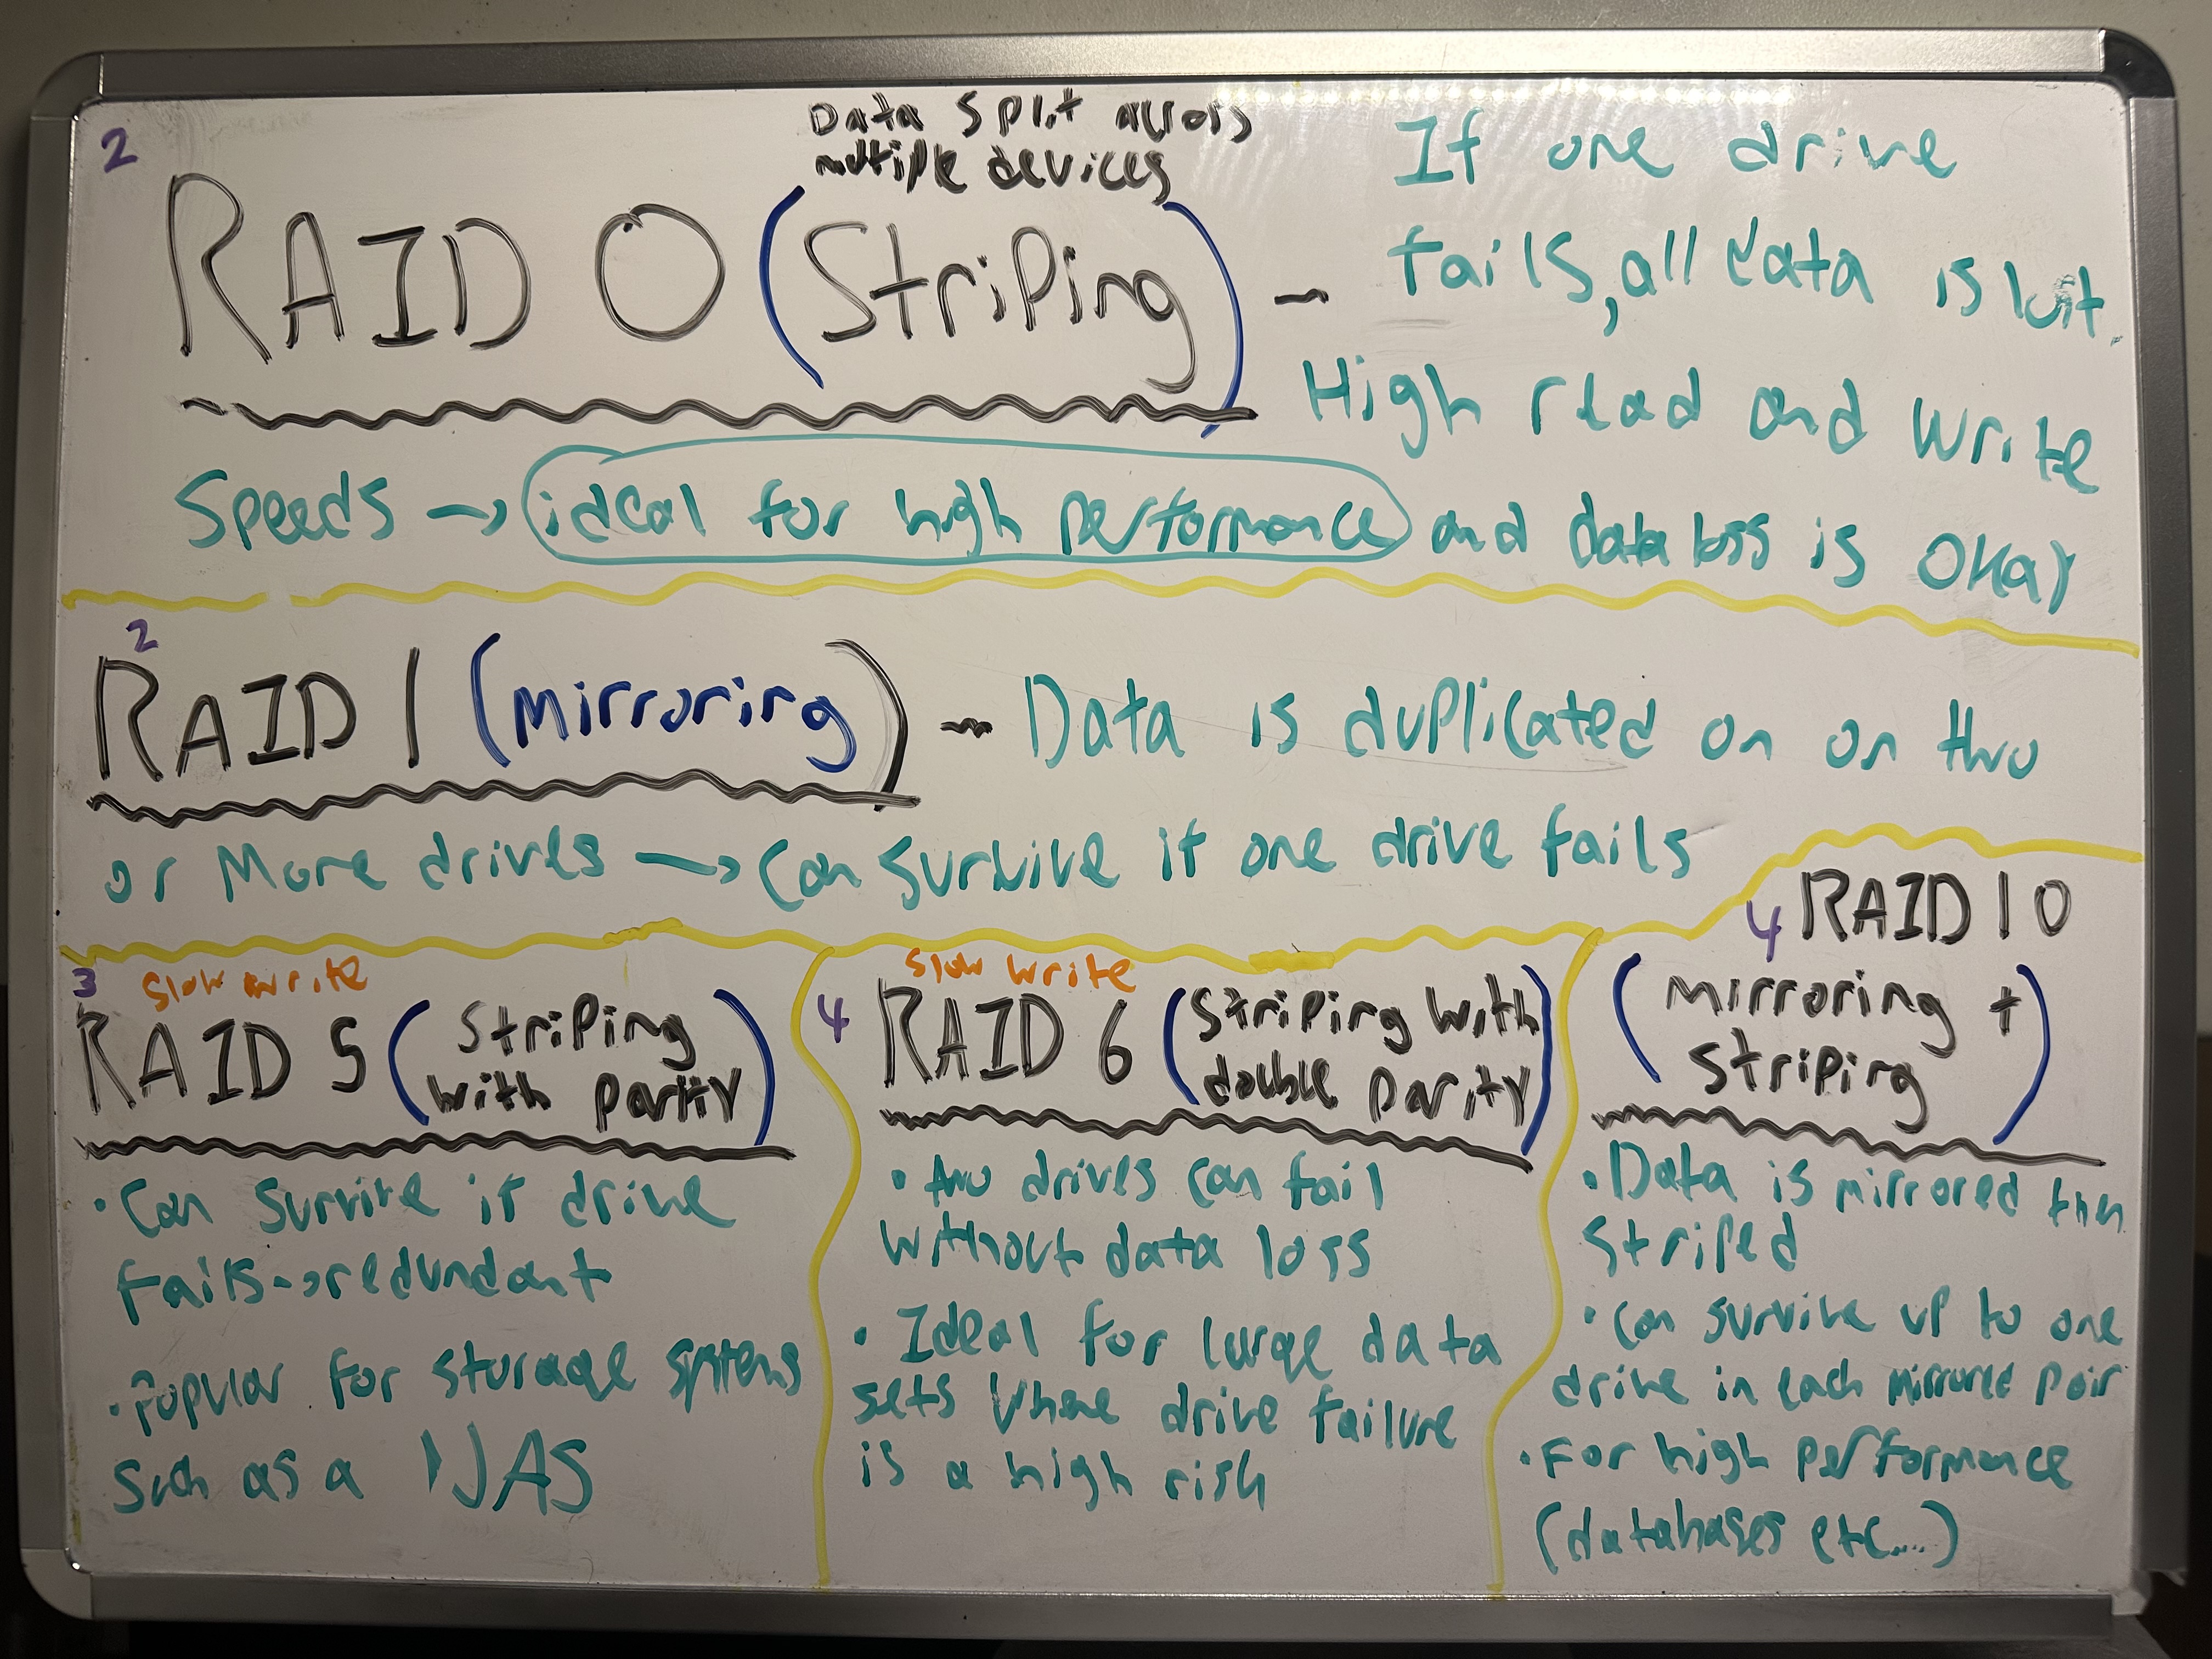 2
Data Split across
multiple devices
RAID 0 (Striping) -
If one drive
fails, all data is lost.
High read and write
Speeds → ideal for high performance and data loss is okay
2
RAID 1 (mirroring) - Data is duplicated on on two
or More drives → Can survive if one drive fails
3 Slow write
RAID 5 (Striping
with parity)
• Can survive if drive
fails → redundant
• Popular for storage systems
such as a NAS
Slow write
4 RAID 6 (Striping With
double parity)
• two drives can fail
without data loss
• Ideal for large data
sets where drive failure
is a high risk
4 RAID 10
(mirroring +
striping)
• Data is mirrored then
striped
• Can survive up to one
drive in each mirrored pair
• For high performance
(databases etc....)